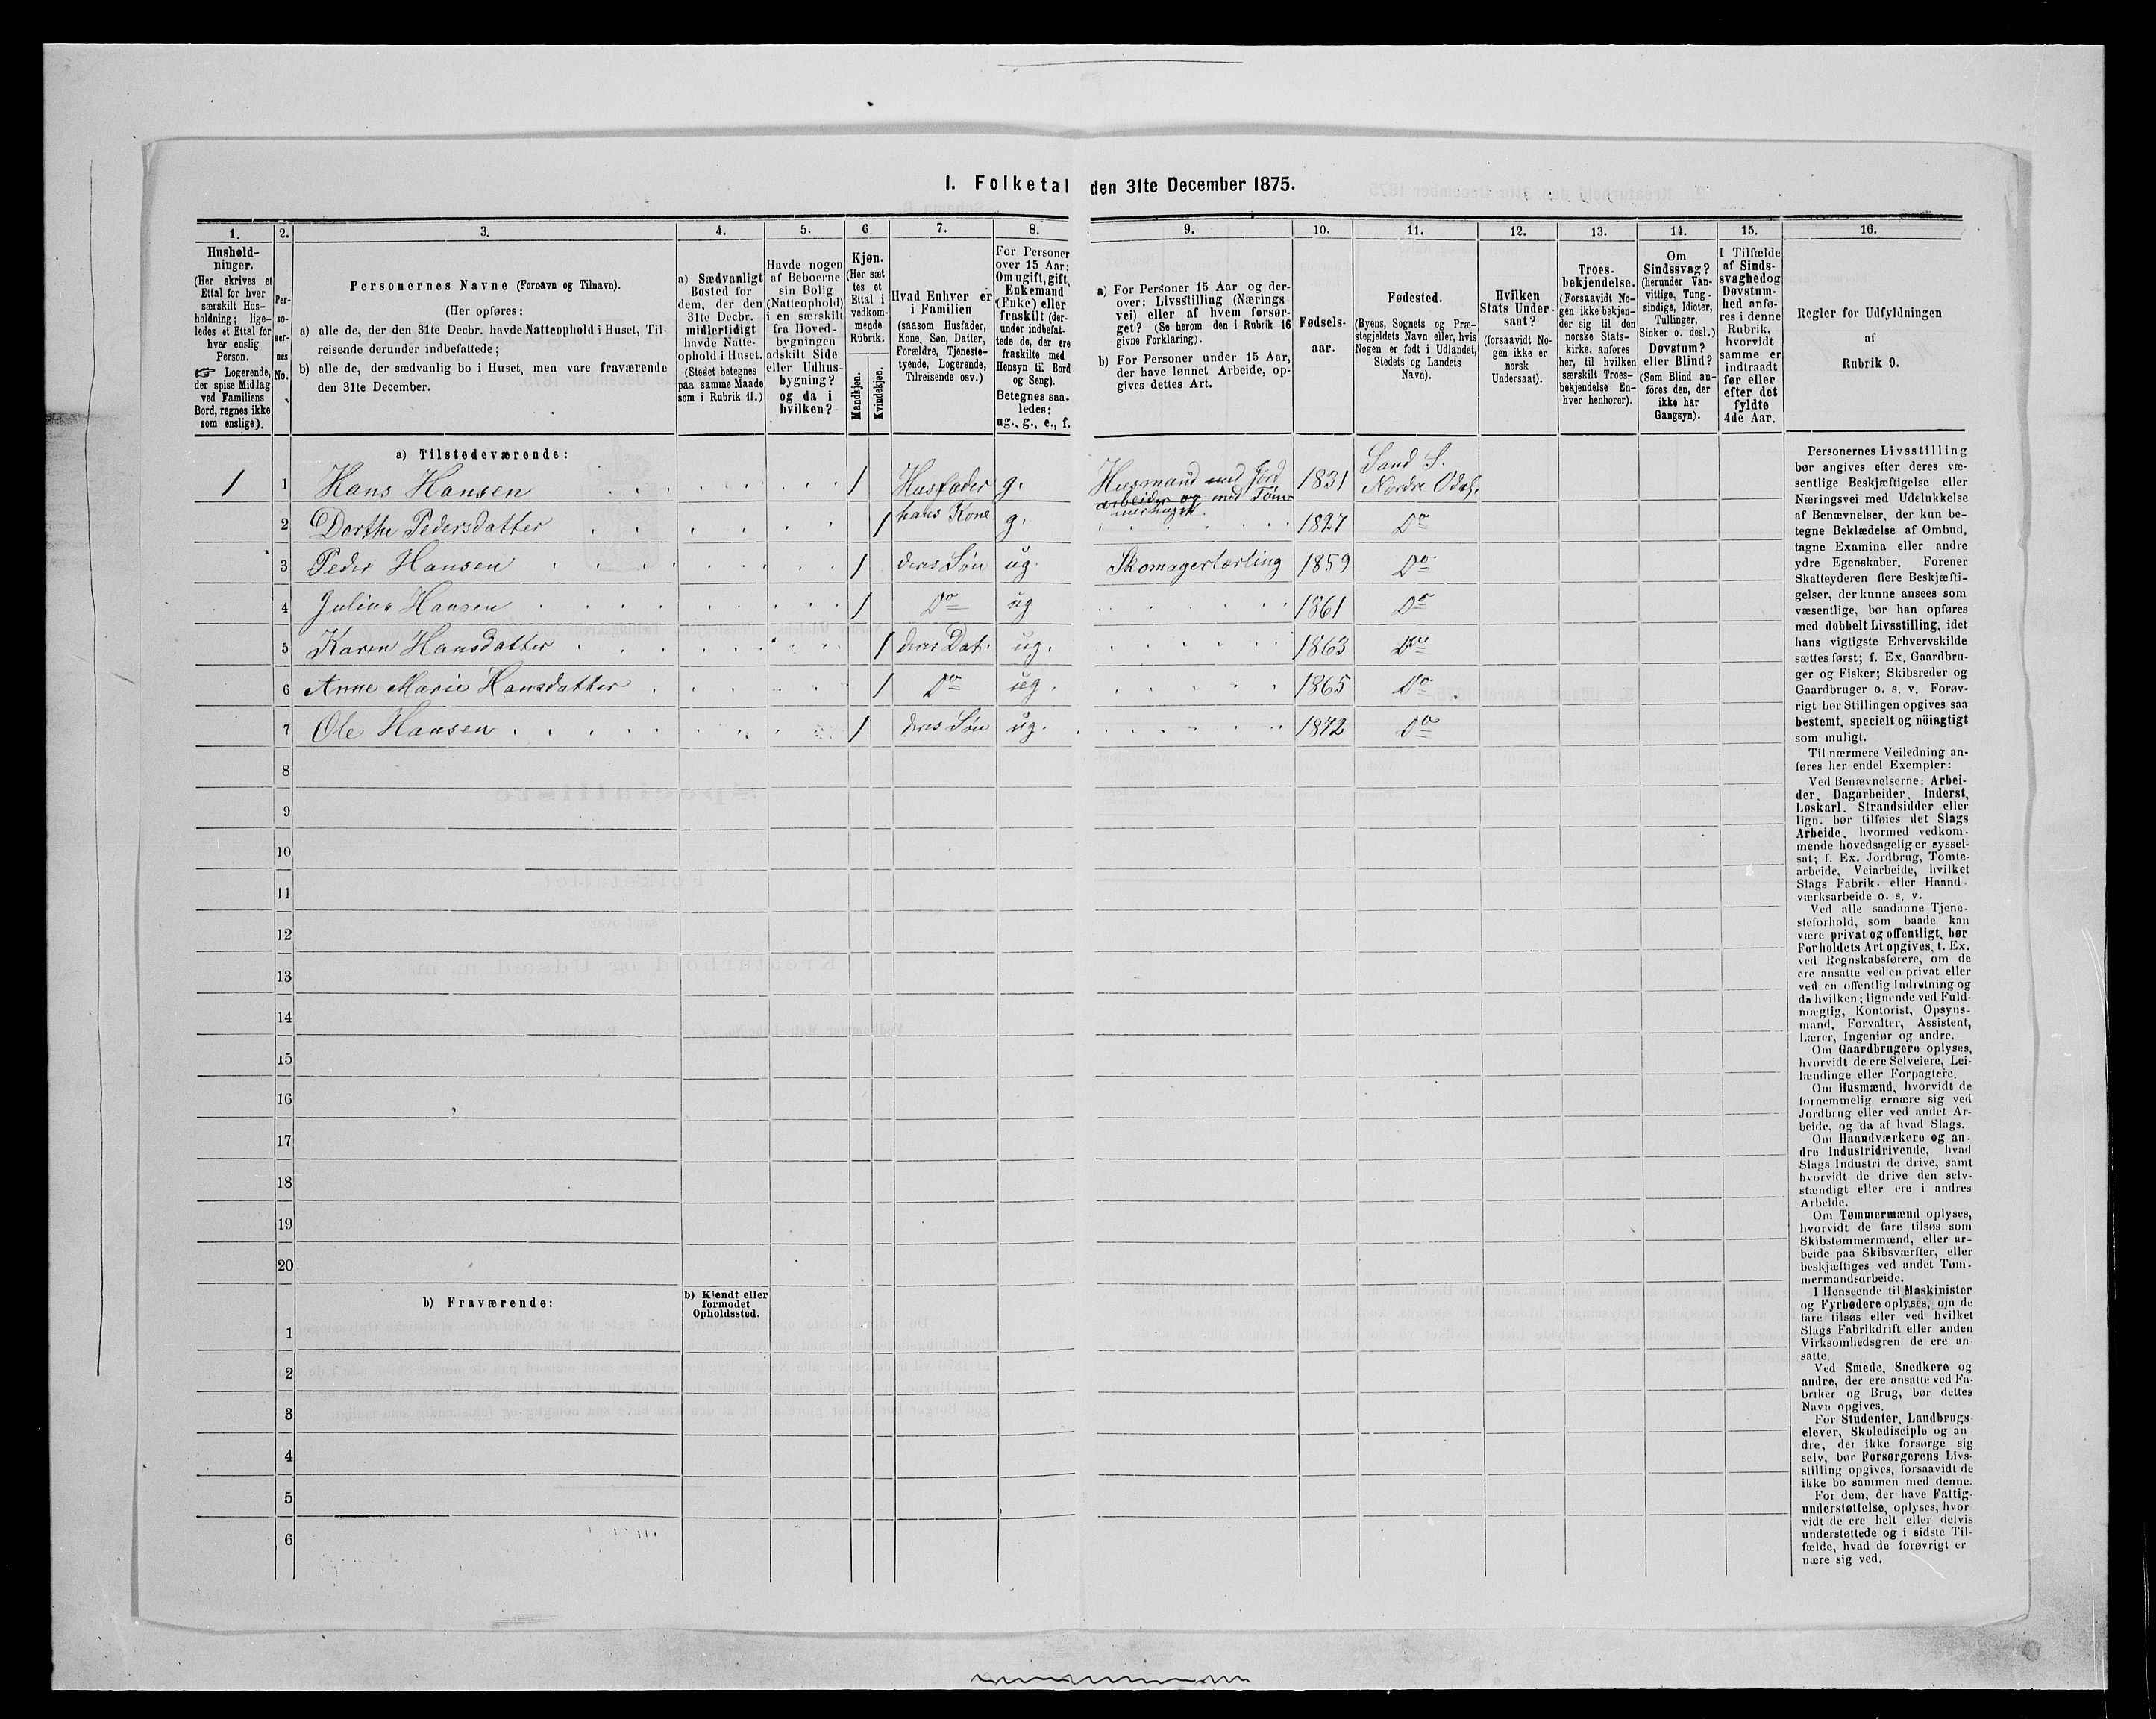 I. Folketal den 31te December 1875.
1. 2. 3. 4. 5. 6. 7. 8. 9. 10. 11. 12. 13. 14. 15. 16.
Hushold-
ninger.
(Her skrives et
Ettal for hver
særskilt Hus-
holdning; lige-
ledes et Ettal for
hver enslig
Person.
☞ Logerende,
der spise Middag
ved Familiens
Bord, regnes ikke
som enslige).
Per-
so-
ner-
nes
No.
Personernes Navne (Fornavn og Tilnavn).
(Her opføres:
a) alle de, der den 31te Decbr. havde Natteophold i Huset, Til-
reisende derunder indbefattede;
b) alle de, der sædvanlig bo i Huset, men vare fraværende
den 31te December.
a) Sædvanligt
Bosted for
dem, der den
31te Decbr.
midlertidigt
havde Natte-
ophold i Huset.
(Stedet betegnes
paa samme Maade
som i Rubrik 11.)
Havde nogen
af Beboerne
sin Bolig
(Natteophold)
i en særskilt
fra Hoved-
bygningen
adskilt Side
eller Udhus-
bygning?
og da i
hvilken?
Kjøn.
(Her sæt
tes et
Ettal i
vedkom-
mende
Rubrik.
Mandkjøn.
Kvindekjøn.
Hvad Enhver er
i Familien
(saasom Husfader,
Kone, Søn, Datter,
Forældre, Tjeneste-
tyende, Logerende,
Tilreisende osv.)
For Personer
over 15 Aar:
Om ugift, gift,
Enkemand
(Enke) eller
fraskilt (der-
under indbefat-
tede de, der ere
fraskilte med
Hensyn til Bord
og Seng).
Betegnes saa-
ledes:
ug., g., e., f.
a) For Personer 15 Aar og der-
over: Livsstilling (Nærings
vei) eller af hvem forsør-
get? (Se herom den i Rubrik 16
givne Forklaring).
b) For Personer under 15 Aar,
der have lønnet Arbeide, op-
gives dettes Art.
Fødsels-
aar.
Fødested.
(Byens, Sognets og Præ-
stegjeldets Navn eller, hvis
Nogen er født i Udlandet,
Stedets og Landets
Navn).
Hvilken
Stats Under-
saat?
(forsaavidt No-
gen ikke er
norsk
Undersaat).
Troes-
bekjendelse.
(Forsaavidt No-
gen ikke bekjen-
der sig til den
norske Stats-
kirke, anføres
her, til hvilken
særskilt Troes-
bekjendelse En-
hver henhører).
Om
Sindssvag?
(herunder Van-
vittige, Tung-
sindige, Idioter,
Tullinger,
Sinker o. desl.)
Døvstum?
eller Blind?
(Som Blind an-
føres den, der
ikke har
Gangsyn).
I Tilfælde
af Sinds-
svaghed og
Døvstum-
hed anfø-
res i denne
Rubrik,
hvorvidt
samme er
indtraadt
før eller
efter det
fyldte
4de Aar.
Regler for Udfyldningen
af
Rubrik 9.
a) Tilstedeværende:
1 1 Hans Hansen 1 Husfader g. Husmand med Jord 1831 Sand S.
arbeider og med Tøm- Nordre Odal.
merhugst.
2 Dorthe Pedersdatter 1 hans Kone g. 1827 Do
3 Peder Hansen 1 deres Søn ug. Skomagerlærling 1859 Do
4 Julius Hansen 1 Do ug 1861 Do
5 Karen Hansdatter 1 deres Dat. ug. 1863 Do
6 Anne Marie Hansdatter 1 Do ug. 1865 Do
7 Ole Hansen 1 deres Søn ug. 1872 Do
8
9
10
11
12
13
14
15
16
17
18
19
20
b) Fraværende:
b) Kjendt eller
formodet
Opholdssted.
1
2
3
4
5
6
Personernes Livsstilling
bør angives efter deres væ-
sentlige Beskjæftigelse eller
Næringsvei med Udelukkelse
af Benævnelser, der kun be-
tegne Beklædelse af Ombud,
tagne Examina eller andre
ydre Egenskaber. Forener
Skatteyderen flere Beskjæfti-
gelser, der kunne ansees som
væsentlige, bør han opføres
med dobbelt Livsstilling, idet
hans vigtigste Erhvervskilde
sættes først; f. Ex. Gaardbru-
ger og Fisker; Skibsreder og
Gaardbruger o. s. v. Forøv-
rigt bør Stillingen opgives saa
bestemt, specielt og nöiagtigt
som muligt.
Til nærmere Veiledning an-
føres her endel Exempler:
Ved Benævnelserne: Arbei-
der, Dagarbeider, Inderst,
Løskarl, Strandsidder eller
lign. bør tilføies det Slags
Arbeide, hvormed vedkom-
mende hovedsagelig er syssel-
sat; f. Ex. Jordbrug, Tomte-
arbeide, Veiarbeide, hvilket
Slags Fabrik- eller Haand-
værksarbeide o. s. v.
Ved alle saadanne Tjene-
steforhold, som baade kan
være privat og offentligt, bør
Forholdets Art opgives, t. Ex.
ved Regnskabsførere, om de
ere ansatte ved en privat eller
ved en offentlig Indretning og
da hvilken; lignende ved Fuld-
mægtig, Kontorist, Opsyns-
mand, Forvalter, Assistent,
Lærer, Ingeniør og andre.
Om Gaardbrugere oplyses,
hvorvidt de ere Selveiere, Lei-
lændinge eller Forpagtere.
Om Husmænd, hvorvidt de
fornemmelig ernære sig ved
Jordbrug eller ved andet Ar-
beide, og da af hvad Slags.
Om Haandværkere og an-
dre Industridrivende, hvad
Slags Industri de drive, samt
hvorvidt de drive den selv-
stændigt eller ere i andres
Arbeide.
Om Tømmermænd oplyses,
hvorvidt de fare tilsøs som
Skibstømmermænd, eller ar-
beide paa Skibsværfter, eller
beskjæftiges ved andet Tøm-
mermandsarbeide.
I Henseende til Maskinister
og Fyrbødere oplyses, om de
fare tilsøs eller ved hvilket
Slags Fabrikdrift eller anden
Virksomhedsgren de ere an-
satte.
Ved Smede, Snedkere og
andre, der ere ansatte ved Fa-
briker og Brug, bør dettes
Navn opgives.
For Studenter, Landbrugs-
elever, Skoledisciple og an-
dre, der ikke forsørge sig
selv, bør Forsørgerens Livs-
stilling opgives, forsaavidt de
ikke bo sammen med denne.
For dem, der have Fattig-
understøttelse, oplyses, hvor-
vidt de ere helt eller delvis
understøttede og i sidste Til-
fælde, hvad de forøvrigt er-
nære sig ved.